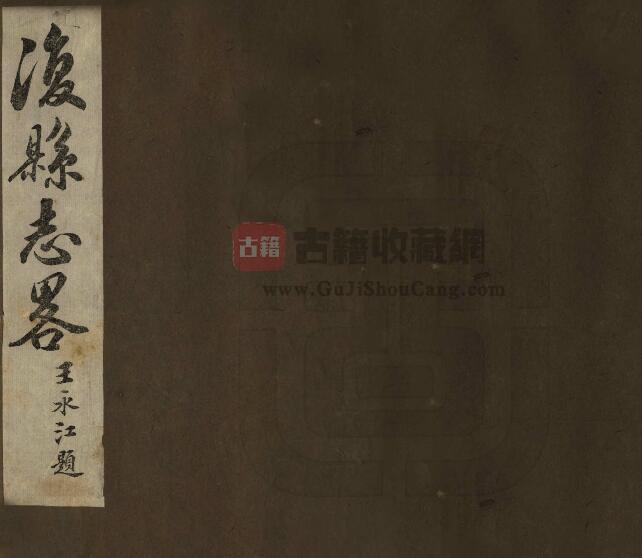 復縣志畧
王永江題
古籍
古籍收藏網
www.GuJiShouCang.com